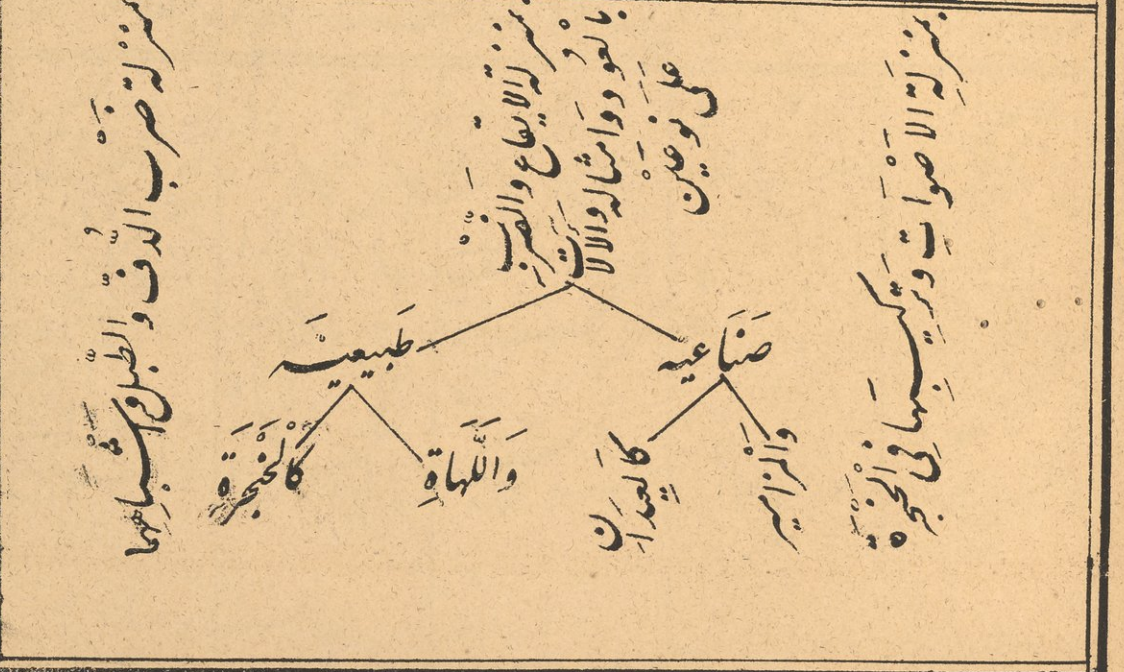 بمنزلة الاَصْوَاتِ وَتَركيبِهَا فِي الْحَنجرة
بمنزلة الايقاع والضَّرْب
بالعُود وَامثاله والالَات
عَلَى نَوعَيْن
صَنَاعيه
طَبيعيَّه
وَالْمزَامير
كالعِيدَانِ
وَاللَّهَاةِ
كَالْحَنْجَرَة
بمنْزلة ضَرْب الدُّفّ والطَّبل واشْبَاههما